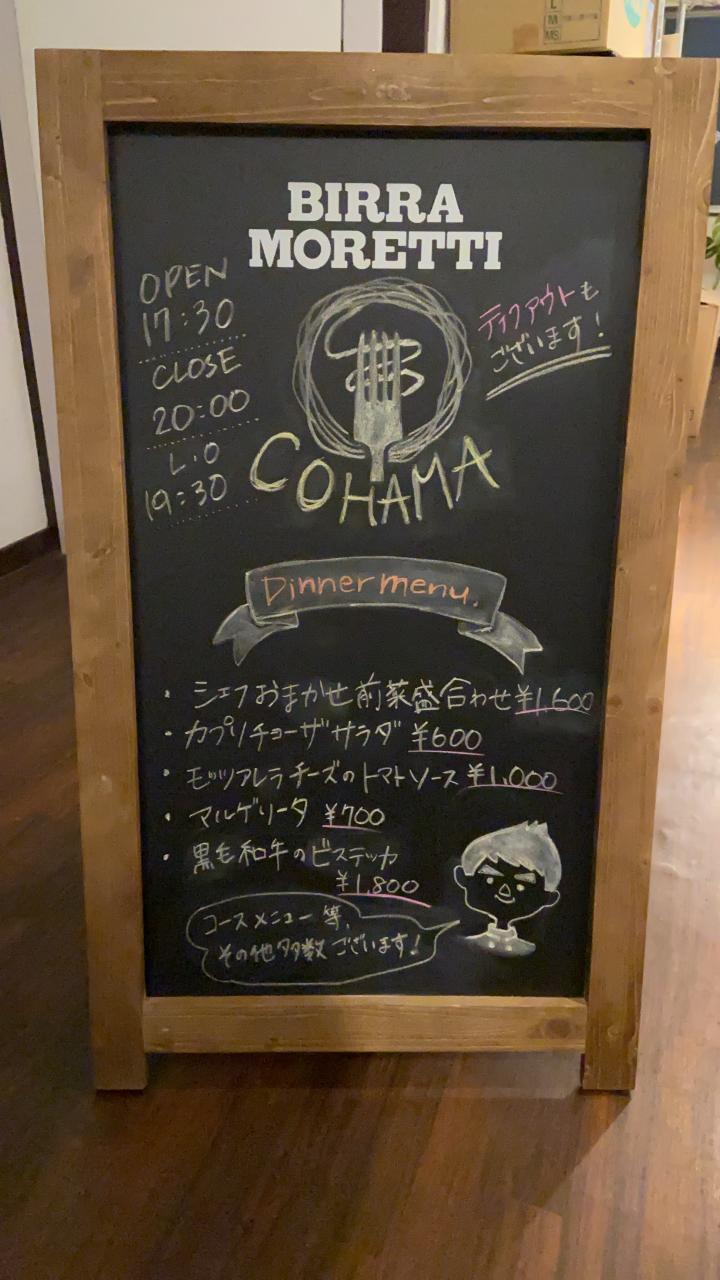 L
M
MS
BIRRA
MORETTI
OPEN
17:30
CLOSE
20:00
L.O
19:30
テイクアウトも
ございます!
COHAMA
Dinner menu.
・シェフおまかせ前菜盛合わせ ¥1,600
・カプリチョーザサラダ ¥600
・モッツアレラチーズのトマトソース ¥1,000
・マルゲリータ ¥700
・黒毛和牛のビステッカ
¥1,800
コースメニュー等、
その他多数ございます!